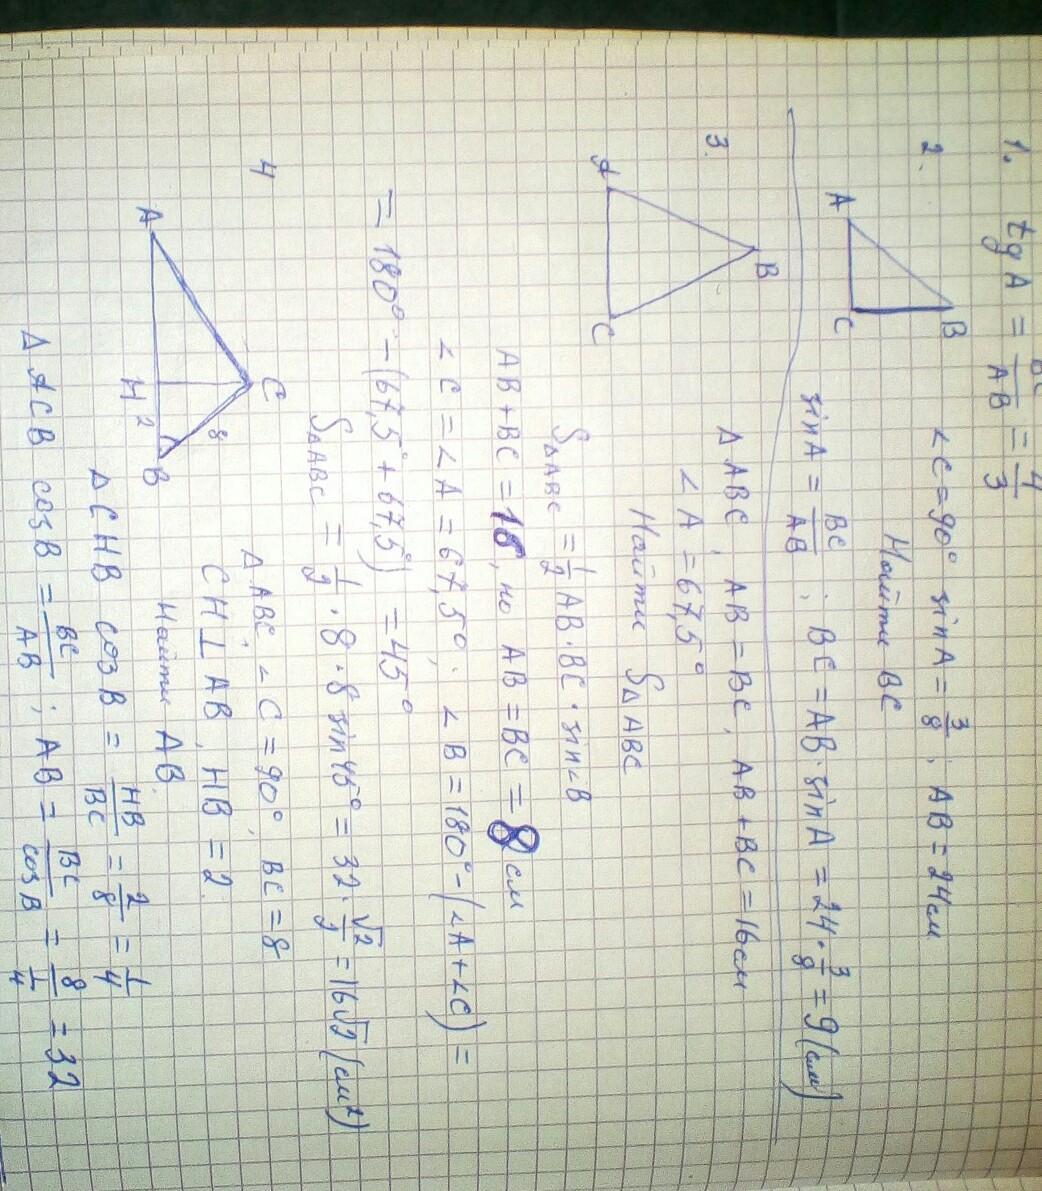 1. tg A = BC/AB = 4/3
2. ∠C=90° sin A = 3/8; AB=24см
Найти BC
A
B
C
sin A = BC/AB; BC = AB·sin A = 24·3/8 = 9(см)
3. Δ ABC, AB = BC, AB + BC = 16см
∠A = 67,5°
Найти SΔABC
A
B
C
SΔABC = 1/2 AB·BC·sin∠B
AB + BC = 16, но AB = BC = 8 см
∠C = ∠A = 67,5°; ∠B = 180° - (∠A + ∠C) =
= 180° - (67,5° + 67,5°) = 45°
SΔABC = 1/2 · 8 · 8 sin45° = 32 · √2/2 = 16√2 (см²)
4
A
H
2
B
8
C
Δ ABC ∠C = 90°, BC = 8
CH ⊥ AB, HB = 2
Найти AB.
Δ CHB cosB = HB/BC = 2/8 = 1/4
Δ ACB cosB = BC/AB; AB = BC/cosB = 8/1/4 = 32